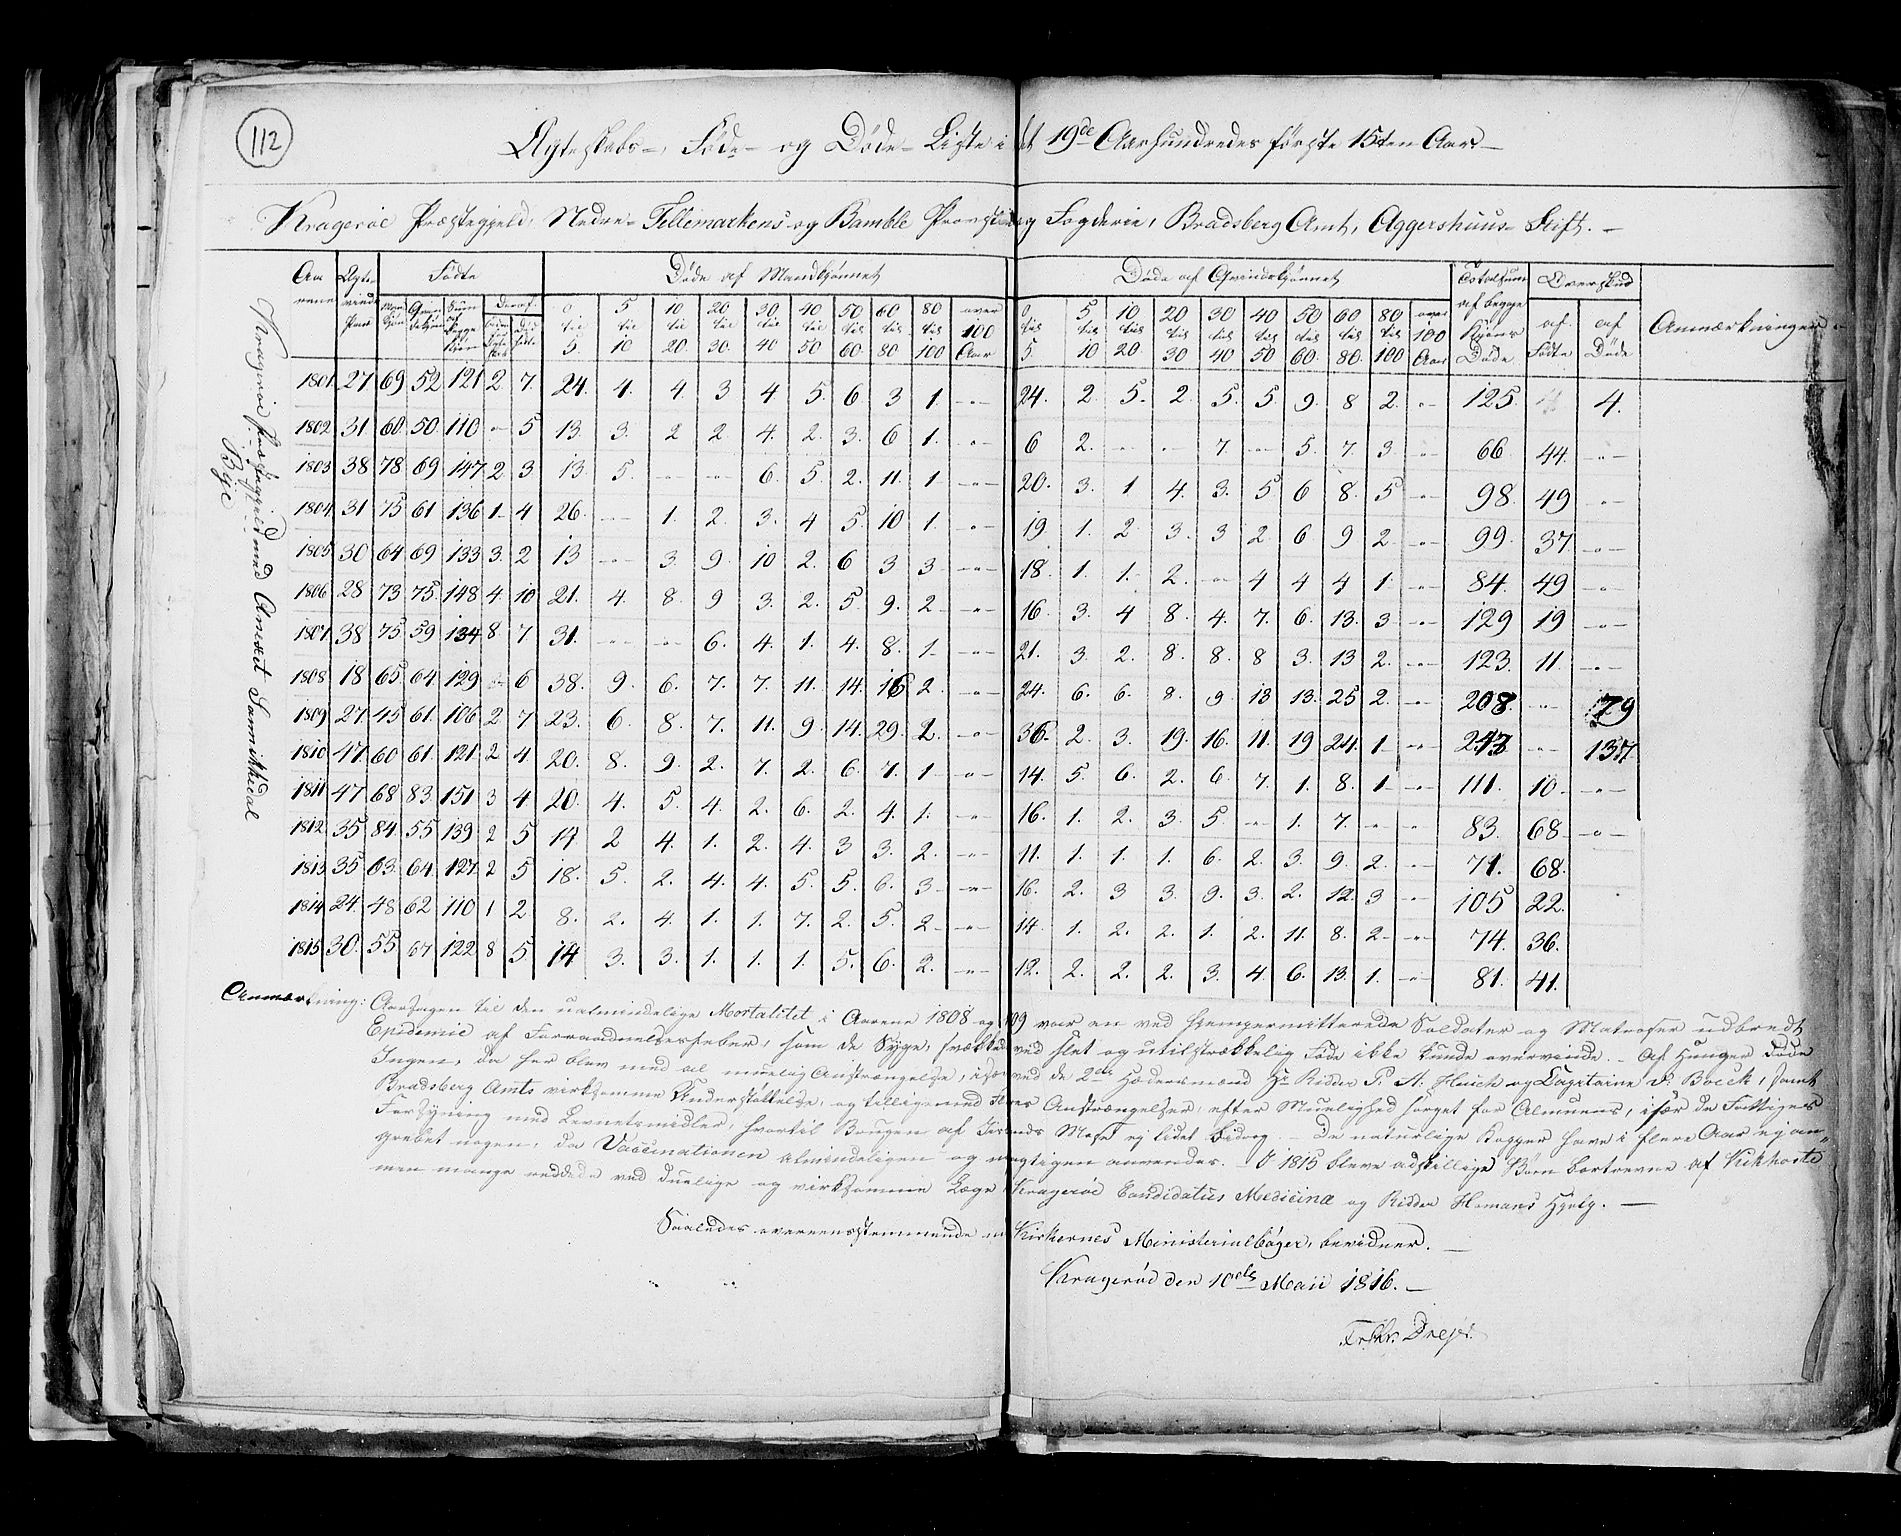 112
Ægteskabs-, Føde- og Døde- Liste i det 19de Aarhundredes første 15ten Aar.
Kragerøe Præstegjeld, Nedre- Tellemarkens og Bamble Provstie og Fogderie, Bradsberg Amt, Aggershuus- Stift.
Kragerøe Præstegjeld med Annexet Sannikkedal
Bye
Aarene Ægteviede Par Fødte Døde af Mandkjønnet Døde af Qvindekjønnet Totalsum af begge Kjøns Døde Overskud Anmærkninger
Mandkjøn Qvindekjøn Sum af begge Kjøn Deraf af Fødte af Døde
0 til 5. 5 til 10 10 til 20 20 til 30. 30 til 40 40 til 50 50 til 60. 60 til 80 80 til 100 over 100 Aar 0 til 5. 5 til 10 10 til 20 20 til 30 30 til 40 40 til 50 50 til 60. 60 til 80 80 til 100 over 100 Aar
1801 27 69 52 121 2 7. 24. 4. 4 3 4 5. 6 3 1. -"- 24. 2 5. 2. 5. 5. 9. 8 2. -"- 125. 4.
1802 31 60. 50. 110 -"- 5 13. 3. 2 2. 4. 2. 3. 6 1. -"- 6 2. -"- -"- 7. -"- 5. 7. 3. -"- 66. 44. -"-
1803 38 78 69 147. 2 3 13. 5. -"- -"- 6. 5 2. 11. 1. -"- 20. 3. 1 4. 3. 5 6 8. 5 -"- 98. 49 -"-
1804 31 75 61 136 1. 4 26. -"- 1. 2. 3. 4 5. 10 1. -"- 19 1. 2 3. 3 2 6 9 2. -"- 99. 37. -"-
1805 30 64 69 133 3. 2 13 -"- 3. 9. 10 2. 6 3 3. -"- 18. 1. 1. 2. -"- 4 4 4 1. -"- 84. 49 -"-
1806 28 73 75. 148 4. 10 21. 4. 8. 9 3. 2. 5. 9. 2. -"- 16. 3. 4 8. 4. 7. 6. 13. 3 -"- 129 19 -"-
1807 38 75 59 134 8. 7 31. -"- -"- 6. 4. 1. 4. 8. 1. -"- 21. 3. 2. 8. 8. 8 3. 13 2. -"- 123. 11. -"-
1808 18 65 64 129 -"- 6 38. 9. 6. 7. 7. 11. 14. 16 2. -"- 24. 6. 6. 8. 9. 18 13. 25 2. -"- 208. -"- 79
1809 27 45 61. 106 2 7 23. 6. 8. 7. 11. 9. 14. 29. 2. -"- 36. 2. 3. 19. 16. 11. 19 24. 1. -"- 243 -"- 137
1810 47. 60 61. 121. 2 4 20. 8. 9. 2. 7. 2. 6. 7. 1. -"- 14. 5. 6. 2. 6. 7. 1. 8. 1. -"- 111. 10. -"-
1811 47 68 83. 151 3 4 20. 4. 5. 4. 2. 6. 2. 4. 1. -"- 16. 1. 2. 3. 5. -"- 1. 7. -"- -"- 83. 68. -"-
1812. 35 84. 55 139 2 5 17 2 4. 1. 2. 4. 3 3. 2. -"- 11. 1. 1. 1. 6. 2. 3. 9. 2. -"- 71. 68.
1813 35 63. 64. 127. 2 5 18. 5. 2. 4. 4. 5. 5. 6. 3. -"- 16. 2. 3 3. 9. 3. 2. 12. 3 -"- 105 22.
1814 24. 48 62 110 1 2. 8. 2. 4. 1. 1. 7. 2. 5. 2. -"- 14. 1. 2. 2. 1. 2. 11. 8. 2. -"- 74. 36.
1815 30. 55 67 122 8 5 14 3. 3. 1. 1. 1. 5. 6. 2. -"- 12. 2. 2. 2. 3. 4. 6. 13. 1. -"- 81. 41.
Anmærkning: Aarsagen til den ualmindelige Mortalitet i Aarene 1808 og 09 var en ved hiempermitterede Soldater og Matroser udbredt
Epidemie af Forraadnelsesfeber, som de Syge, svækked ved slet og utilstrækkelig Føde ikke kunde overvinde. - Af Hunger døde
Ingen, da her blev med al muelig Anstrængelse, især ved de 2de Hædersmænd Hr Ridder P. A. Heuch og Capitaine v. Boeck, samt
Bradsberg Amts virksomme Understøttelse, og tilligemed Fleres Anstrængelser, efter Muelighed sørget for Almuens, især de Fattiges
Forsyning med Levnetsmidler, hvortil Brugen af Islands Mose ej lidet bidrog. - De naturlige Kopper have i flere Aar ej an-
grebet nogen, da Vaccinationen almindeligen og nøigtigen anvendes. I 1815 bleve adskillige Børn bortrevne af Kikhoste
men mange reddede ved duelige og virksomme Læge i Kragerøe Candidatus Medicinæ og Ridder Homans Hielp. -
Saaledes overeensstemmende med Kirkernes Ministerialbøger, bevidner. -
Kragerøe den 10de Maii 1816. -
Dreyer